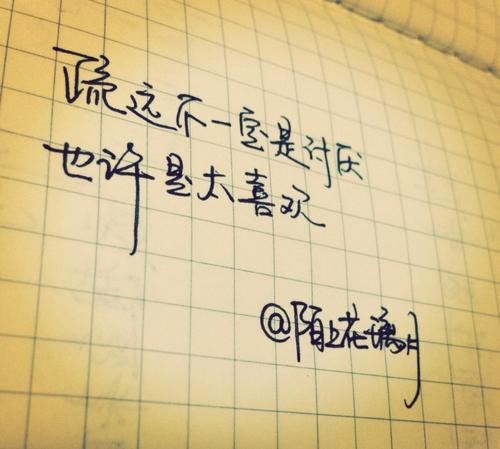 疏远不一定是讨厌
也许是太喜欢
@陌上花